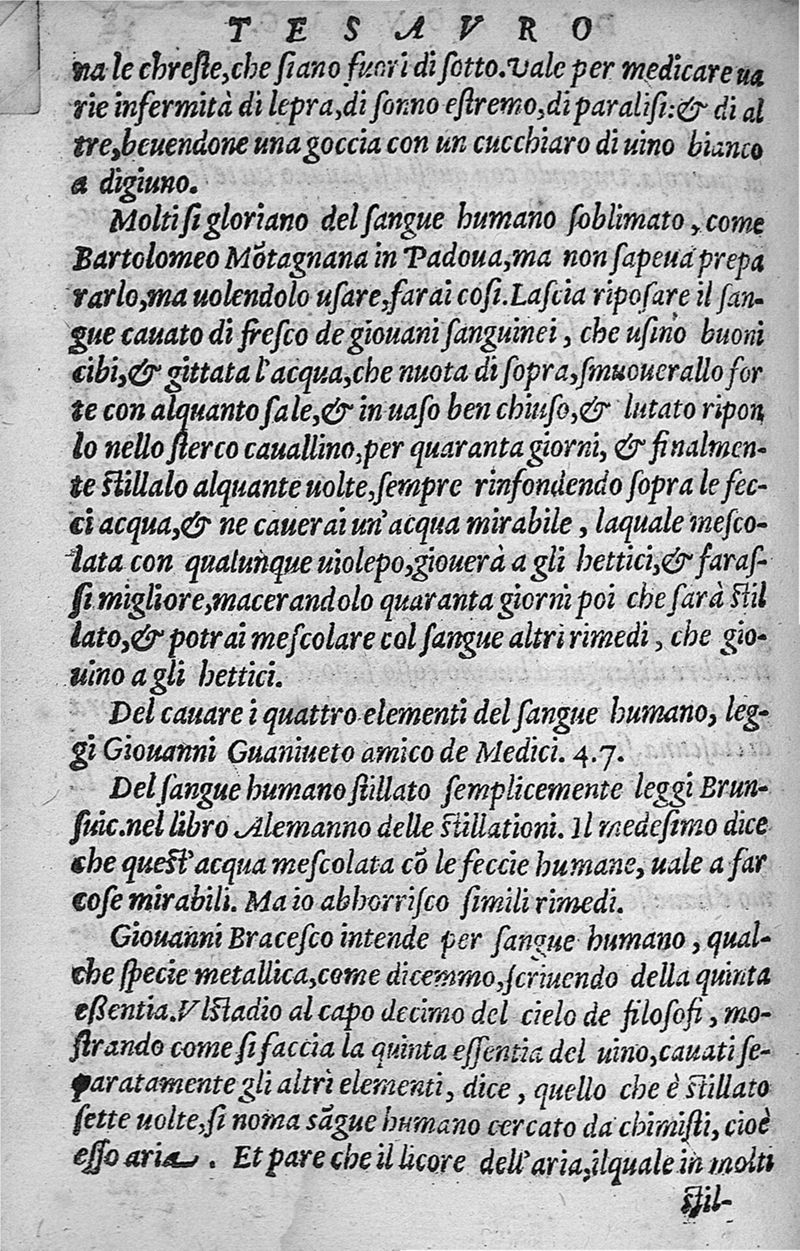 TESAVRO
na le chreſte, che ſiano fuori di ſotto. Vale per medicare ua
rie infermità di lepra, di ſonno eſtremo, di paraliſi: & di al
tre, beuendone una goccia con un cucchiaro di uino bianco
a digiuno.
Molti ſi gloriano del ſangue humano ſoblimato, come
Bartolomeo Mõtagnana in Padoua, ma non ſapeua prepa
rarlo, ma uolendolo uſare, farai coſi. Laſcia ripoſare il ſan-
gue cauato di freſco de giouani ſanguinei, che uſino buoni
cibi, & gittata l'acqua, che nuota di ſopra, ſmuouerallo for
te con alquanto ſale, & in uaſo ben chiuſo, & lutato ripon
lo nello ſterco cauallino, per quaranta giorni, & finalmen-
te ſtillalo alquante uolte, ſempre rinfondendo ſopra le fec-
ci acqua, & ne cauerai un'acqua mirabile, laquale meſco-
lata con qualunque uiolepo, giouerà a gli hettici, & faraſ-
ſi migliore, macerandolo quaranta giorni poi che ſarà ſtil
lato, & potrai meſcolare col ſangue altri rimedi, che gio-
uino a gli hettici.
Del cauare i quattro elementi del ſangue humano, leg-
gi Giouanni Guaniueto amico de Medici. 4.7.
Del ſangue humano ſtillato ſemplicemente leggi Brun-
ſuic. nel libro Alemanno delle ſtillationi. Il medeſimo dice
che queſt'acqua meſcolata cõ le feccie humane, uale a far
coſe mirabili. Ma io abhorriſco ſimili rimedi.
Giouanni Braceſco intende per ſangue humano, qual-
che ſpecie metallica, come dicemmo, ſcriuendo della quinta
eßentia. Vlſtadio al capo decimo del cielo de filoſofi, mo-
ſtrando come ſi faccia la quinta eſſentia del uino, cauati ſe-
paratamente gli altri elementi, dice, quello che è ſtillato
ſette uolte, ſi noma sãgue humano cercato da chimiſti, cioè
eſſo aria. Et pare che il licore dell'aria, ilquale in molti
ſtil-